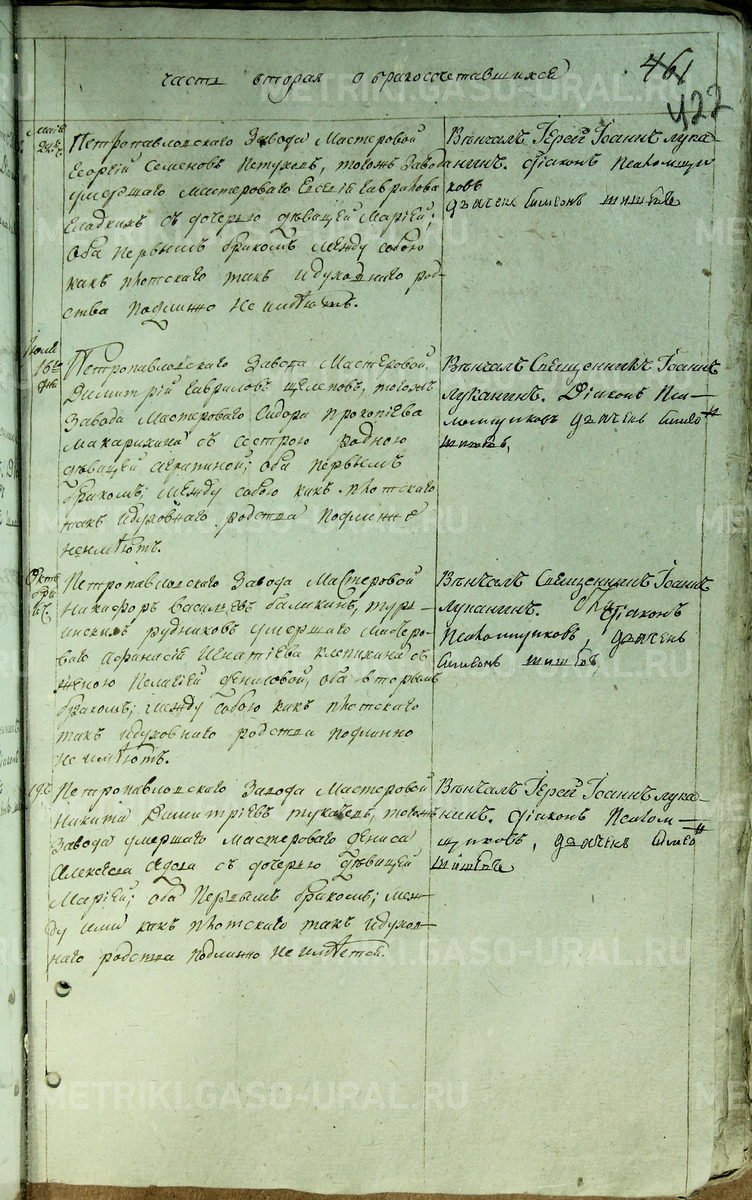 часть вторая о бракосочетавшихся
461
422
маія
24.
Петропавловскаго Завода Мастеровой
Георгій Семеновъ Петуховъ, тогожъ Завода
умершаго мастероваго Гаврилова
Сладкихъ съ дочерью дѣвицей Маріей;
Оба первымъ бракомъ между собою
какъ плотскаго такъ идуховнаго род-
ства подлинно не имѣютъ.
Вѣнчалъ Іерей Іоаннъ Лука-
нинъ. діаконъ Псаломщи
ковъ
дьячекъ Симеонъ Шишовъ
16го
дня
Петропавловскаго Завода Мастеровой
Димитрій Гавриловъ тогожъ
Завода Мастероваго Сидора Прокопіева
Макарихина съ сестрою родною
дѣвицей Агрипиной; оба первымъ
бракомъ; между собою какъ плотскаго
такъ идуховнаго родства подлинно
неимѣютъ.
Вѣнчалъ Священникъ Іоаннъ
Луканинъ. Діаконъ Пса-
ломщиковъ дьячекъ Симео
Шишовъ,
Октя
бря
Петропавловскаго Завода Мастеровой
Никифоръ Васильевъ Балакинъ, Турь-
инскихъ рудниковъ умершаго Мастеро-
ваго Афанасія Игнатіева Клепикина съ
женою Пелагіей Даниловой, оба вторымъ
бракомъ; между собою какъ плотскаго
такъ идуховнаго родства подлинно
не имѣютъ.
Вѣнчалъ Священникъ Іоаннъ
Луканинъ. діаконъ
Псаломщиковъ, дьячекъ
Симеонъ Шишовъ,
19.
Петропавловскаго Завода Мастеровой
Никита Димитріевъ тогожъ
Завода умершаго мастероваго Дениса
Алексѣева съ дочерью дѣвицей
Маріей; оба первымъ бракомъ; меж-
ду ими какъ плотскаго такъ идухов-
наго родства подлинно не имѣется.
Вѣнчалъ Іерей Іоаннъ Лука-
нинъ. діаконъ Псалом-
щиковъ, дьячекъ Симео
Шишовъ
METRIKI.GASO-URAL.RU